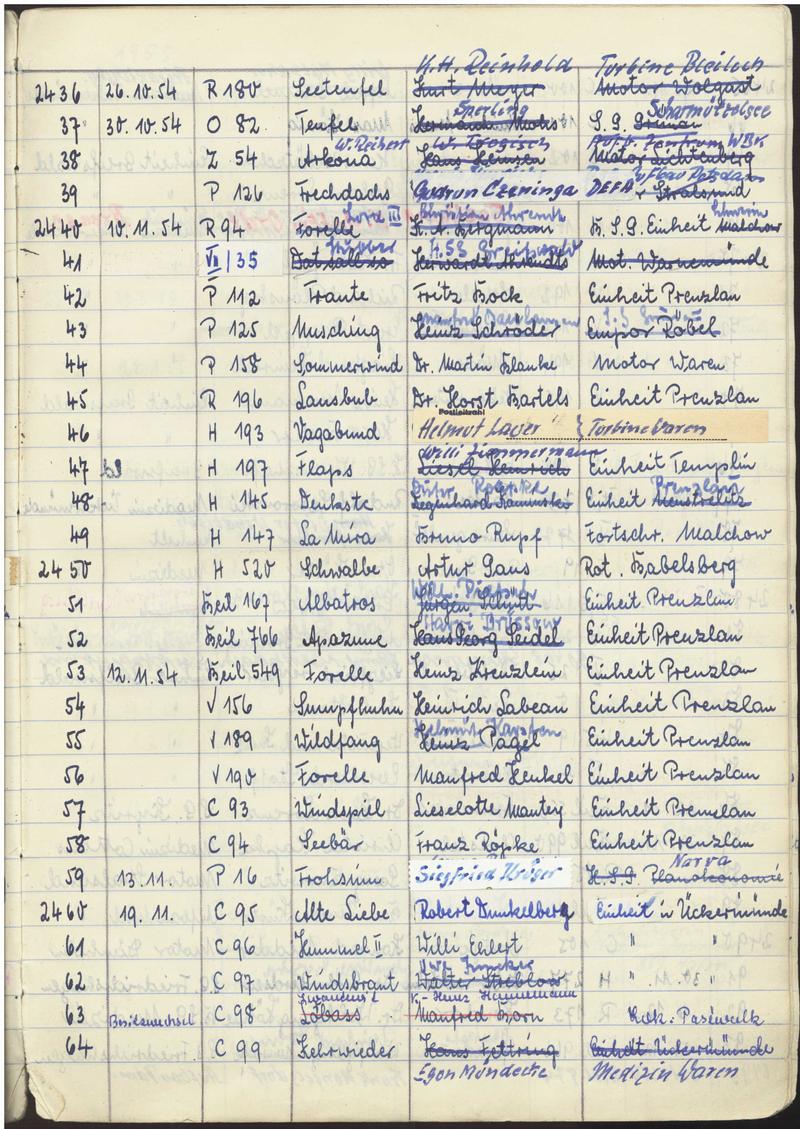 K.H. Reinhold Turbine Bleiloch
2436 26.10.54 R 180 Seeteufel Kurt Meyer Motor Wolgast
Sperling Scharmützelsee
37 30.10.54 O 82 Teufel S.G. Grünau
W. Reibert Aufb. Zentrum WBK
38 Z 54 Arkona Hans Hemsen Motor Lichtenberg
Aufbau Potsdam
39 P 126 Frechdachs Gudrun Czeninga DEFA Stralsund
Lord III Christian Ahrendt Schwerin
2440 10.11.54 R 94 Forelle K.A. Bergmann B.S.G. Einheit Malchow
HSG Greifswald
41 VII/35 Dat sall so Mot. Warnemünde
42 P 112 Traute Fritz Bock Einheit Prenzlau
43 P 125 Musching Heinz Schröder Empor Röbel
44 P 158 Sommerwind Dr. Martin Blanke Motor Waren
45 R 196 Lausbub Dr. Horst Bartels Einheit Prenzlau
Postleitzahl
46 H 193 Vagabund Helmut Layer Turbine Waren
Willi Zimmermann
47 H 197 Flaps Liesel Heinrich Einheit Templin
Röpke Prenzlau
48 H 145 Denkste Einheit Neustrelitz
49 H 147 La Mira Bruno Rupf Fortschr. Malchow
2450 H 520 Schwalbe Artur Gans Rot. Babelsberg
51 Beil 167 Albatros Jürgen Einheit Prenzlau
52 Beil 766 Apazune Hans Georg Seidel Einheit Prenzlau
53 12.11.54 Beil 549 Forelle Heinz Kreuzlein Einheit Prenzlau
54 V 156 Sumpfhuhn Heinrich Labeau Einheit Prenzlau
Helmut Karsten
55 V 189 Wildfang Heinz Pagel Einheit Prenzlau
56 V 190 Forelle Manfred Henkel Einheit Prenzlau
57 C 93 Windspiel Lieselotte Mantey Einheit Prenzlau
58 C 94 Seebär Franz Röpke Einheit Prenzlau
Narva
59 13.11. P 16 Frohsinn Siegfried Kröger H.S.G. Planökonomie
2460 19.11. C 95 Alte Liebe Robert Dunkelberg Einheit in Ückermünde
61 C 96 Hummel II Willi Ehlert " "
62 C 97 Windsbraut Walter Streblow " "
K.-Heinz Hannemann
63 Besitzwechsel C 98 Lobass Manfred Born Lok. Pasewalk
64 C 99 Kehrwieder Hans Fettring Einheit Ückermünde
Egon Mundecke Medizin Waren